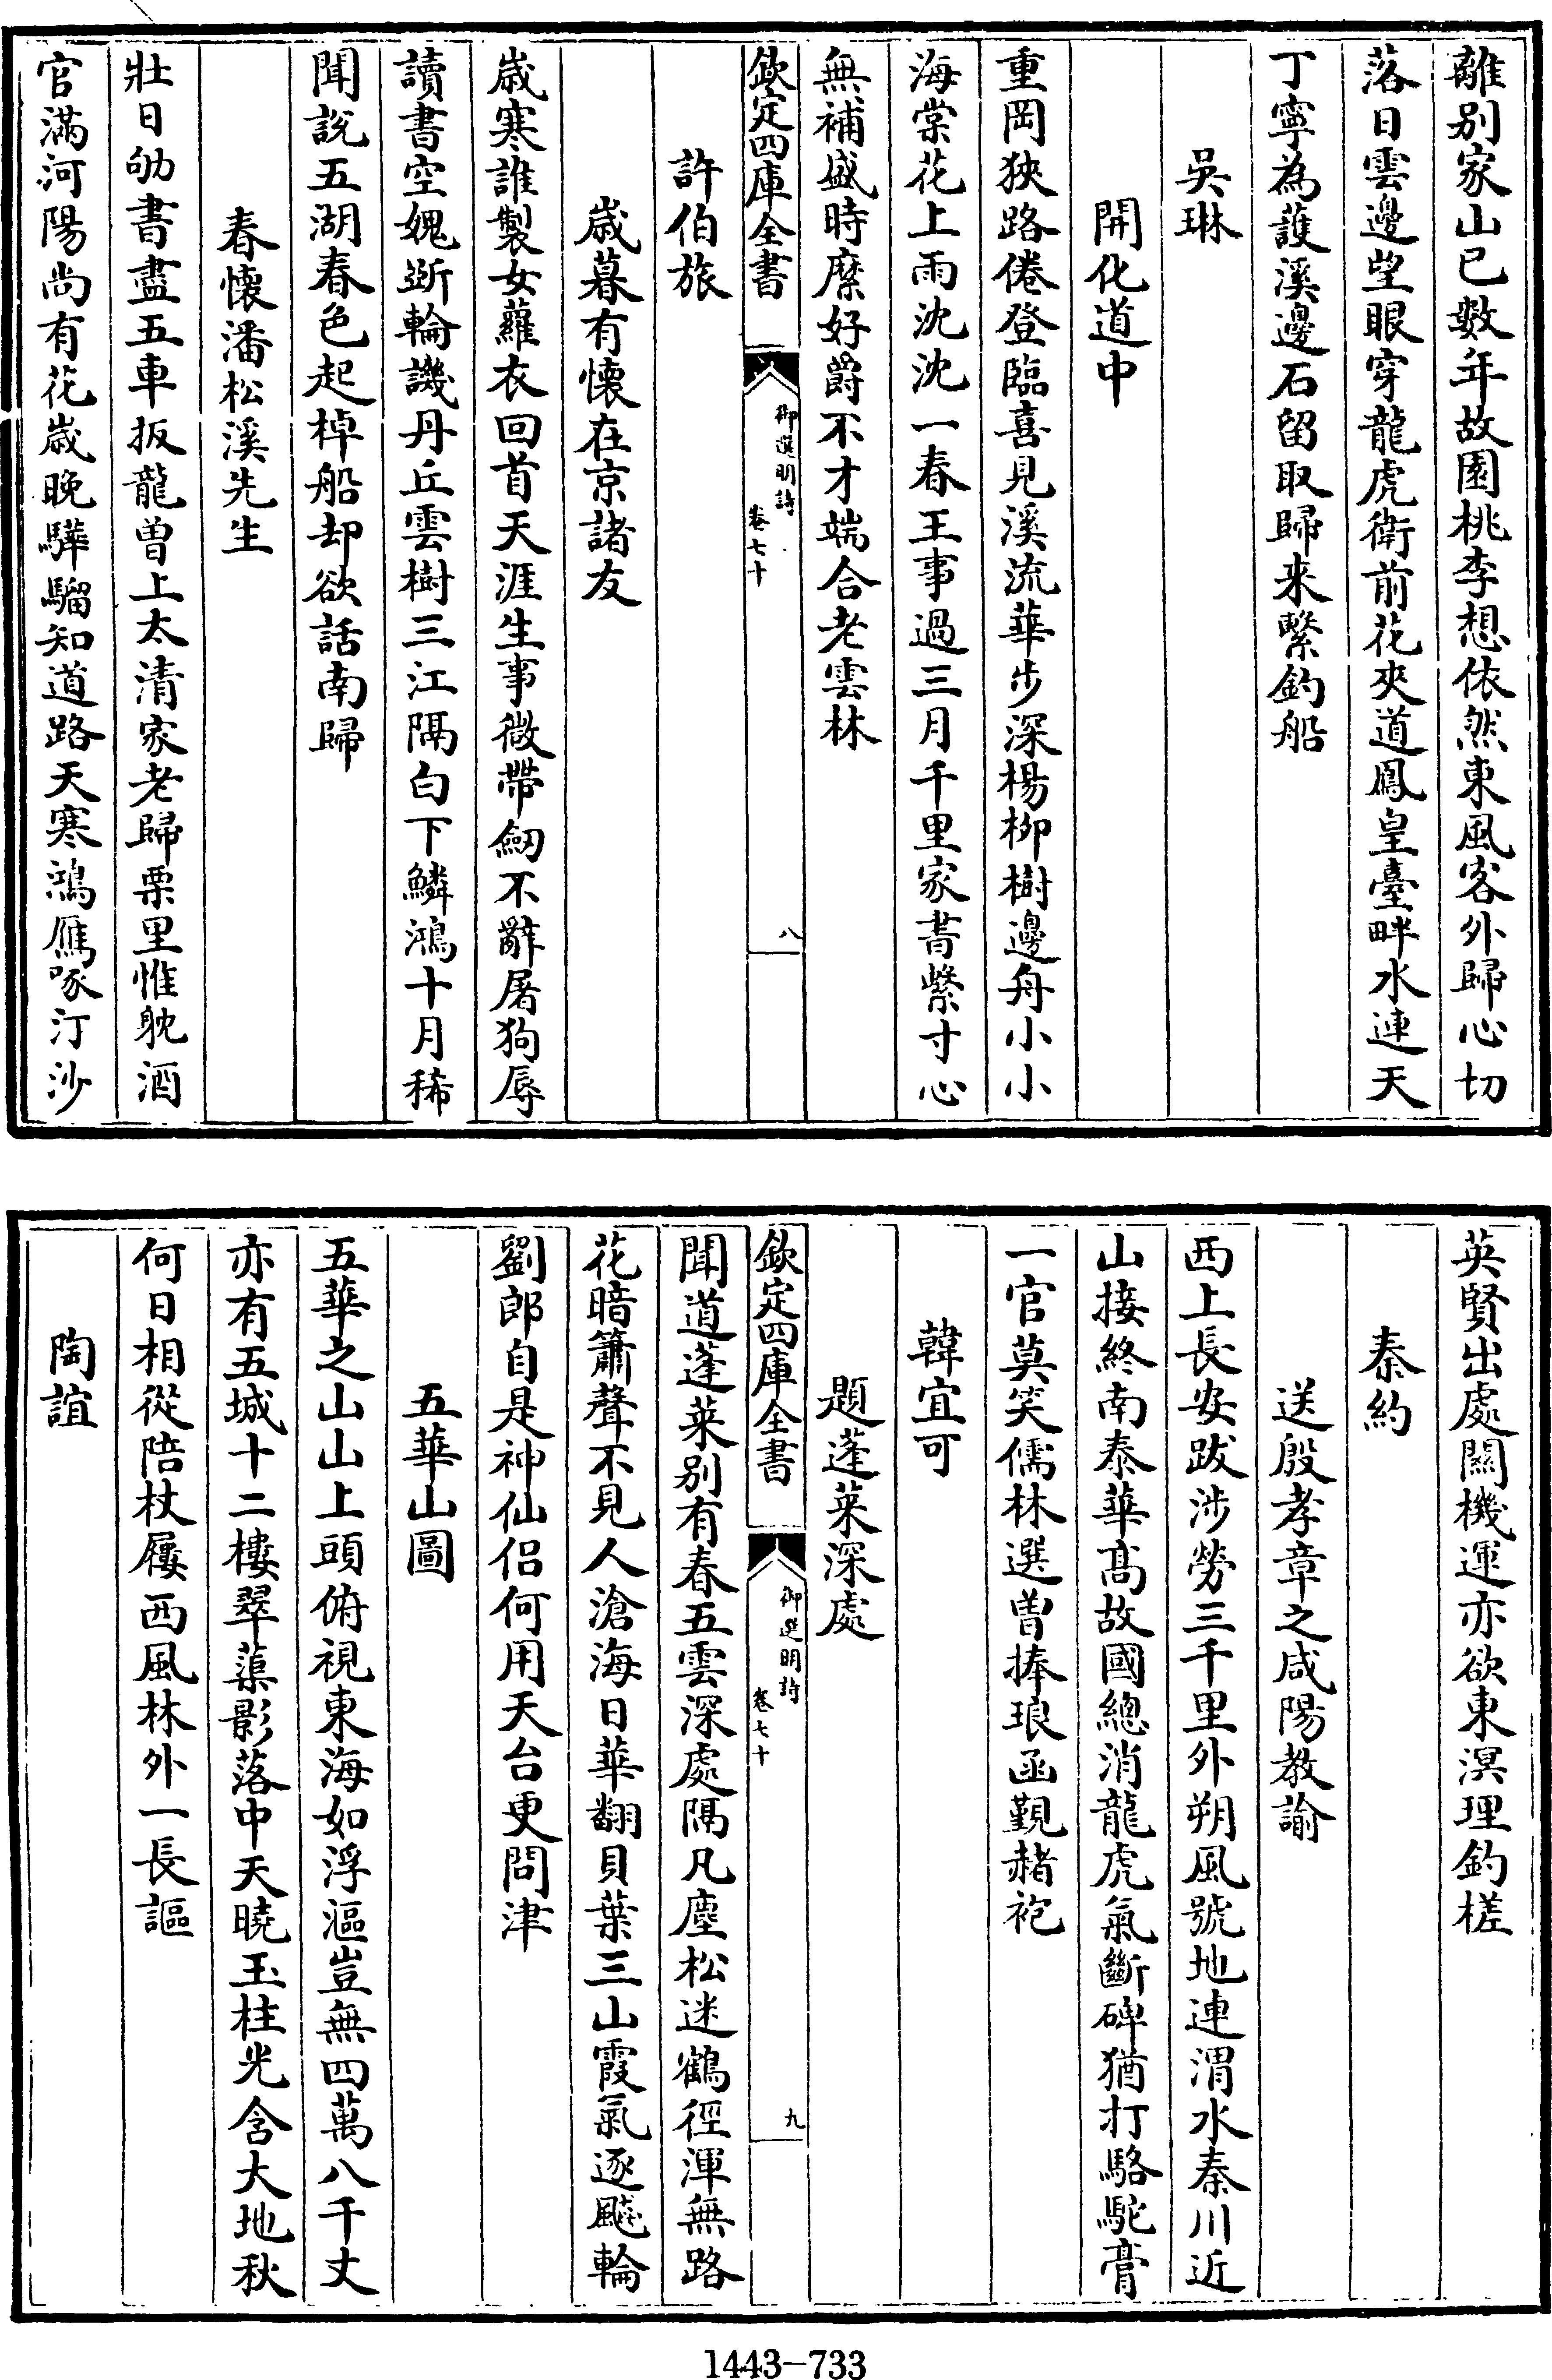 離别家山已數年故園桃李想依然東風客外歸心切
落日雲邊望眼穿龍虎衛前花夾道鳳皇臺畔水連天
丁寧為護溪邊石留取歸来繫釣船
吳琳
開化道中
重岡狹路倦登臨喜見溪流華步深楊柳樹邊舟小小
海棠花上雨沈沈一春王事過三月千里家書縈寸心
無補盛時縻好爵不才端合老雲林
欽定四庫全書
御選明詩
卷七十
八
許伯旅
歲暮有懷在京諸友
歲寒誰製女蘿衣回首天涯生事微帶劒不辭屠狗辱
讀書空媿斲輪譏丹丘雲樹三江隔白下鱗鴻十月稀
聞說五湖春色起棹船却欲話南歸
春懷潘松溪先生
壯日劬書盡五車扳龍曾上太清家老歸栗里惟躭酒
官滿河陽尚有花歲晚驊騮知道路天寒鴻雁啄汀沙
英賢出處關機運亦欲東溟理釣槎
秦約
送殷孝章之咸陽教諭
西上長安跋涉勞三千里外朔風號地連渭水秦川近
山接終南泰華髙故國總消龍虎氣斷碑猶打駱駝膏
一官莫笑儒林選曽捧琅函覲赭袍
韓宜可
題蓬萊深處
欽定四庫全書
御選明詩
卷七十
九
聞道蓬萊别有春五雲深處隔凡塵松迷鶴徑渾無路
花暗簫聲不見人滄海日華翻貝葉三山霞氣逐飇輪
劉郎自是神仙侣何用天台更問津
五華山圖
五華之山山上頭俯視東海如浮漚豈無四萬八千丈
亦有五城十二樓翠蕖影落中天曉玉柱光含大地秋
何日相從陪杖屨西風林外一長謳
陶誼
1443-733